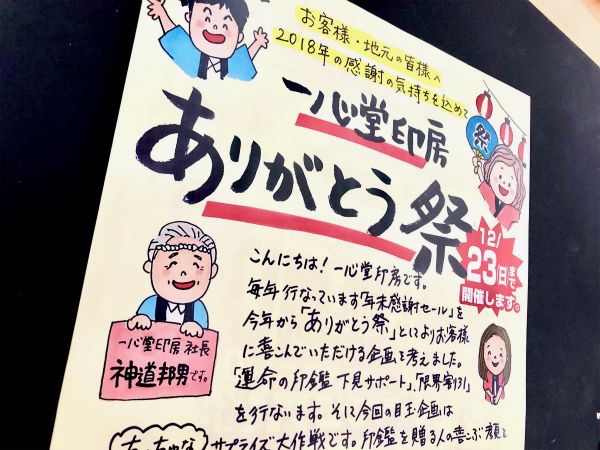 お客様・地元の皆様へ
2018年の感謝の気持ちを込めて
一心堂印房
ありがとう祭
祭
12/
23日まで
開催します。
こんにちは!一心堂印房です。
毎年行なっています「年末感謝セール」を
今年から「ありがとう祭」としてよりお客様
に喜こんでいただける企画を考えました。
「運命の印鑑下見サポート」、「限界割引」
を行ないます。そして今回の目玉企画は
ちっちゃな サプライズ大作戦です。印鑑を贈る人の喜こぶ顔を
一心堂印房 社長
神道邦男です。